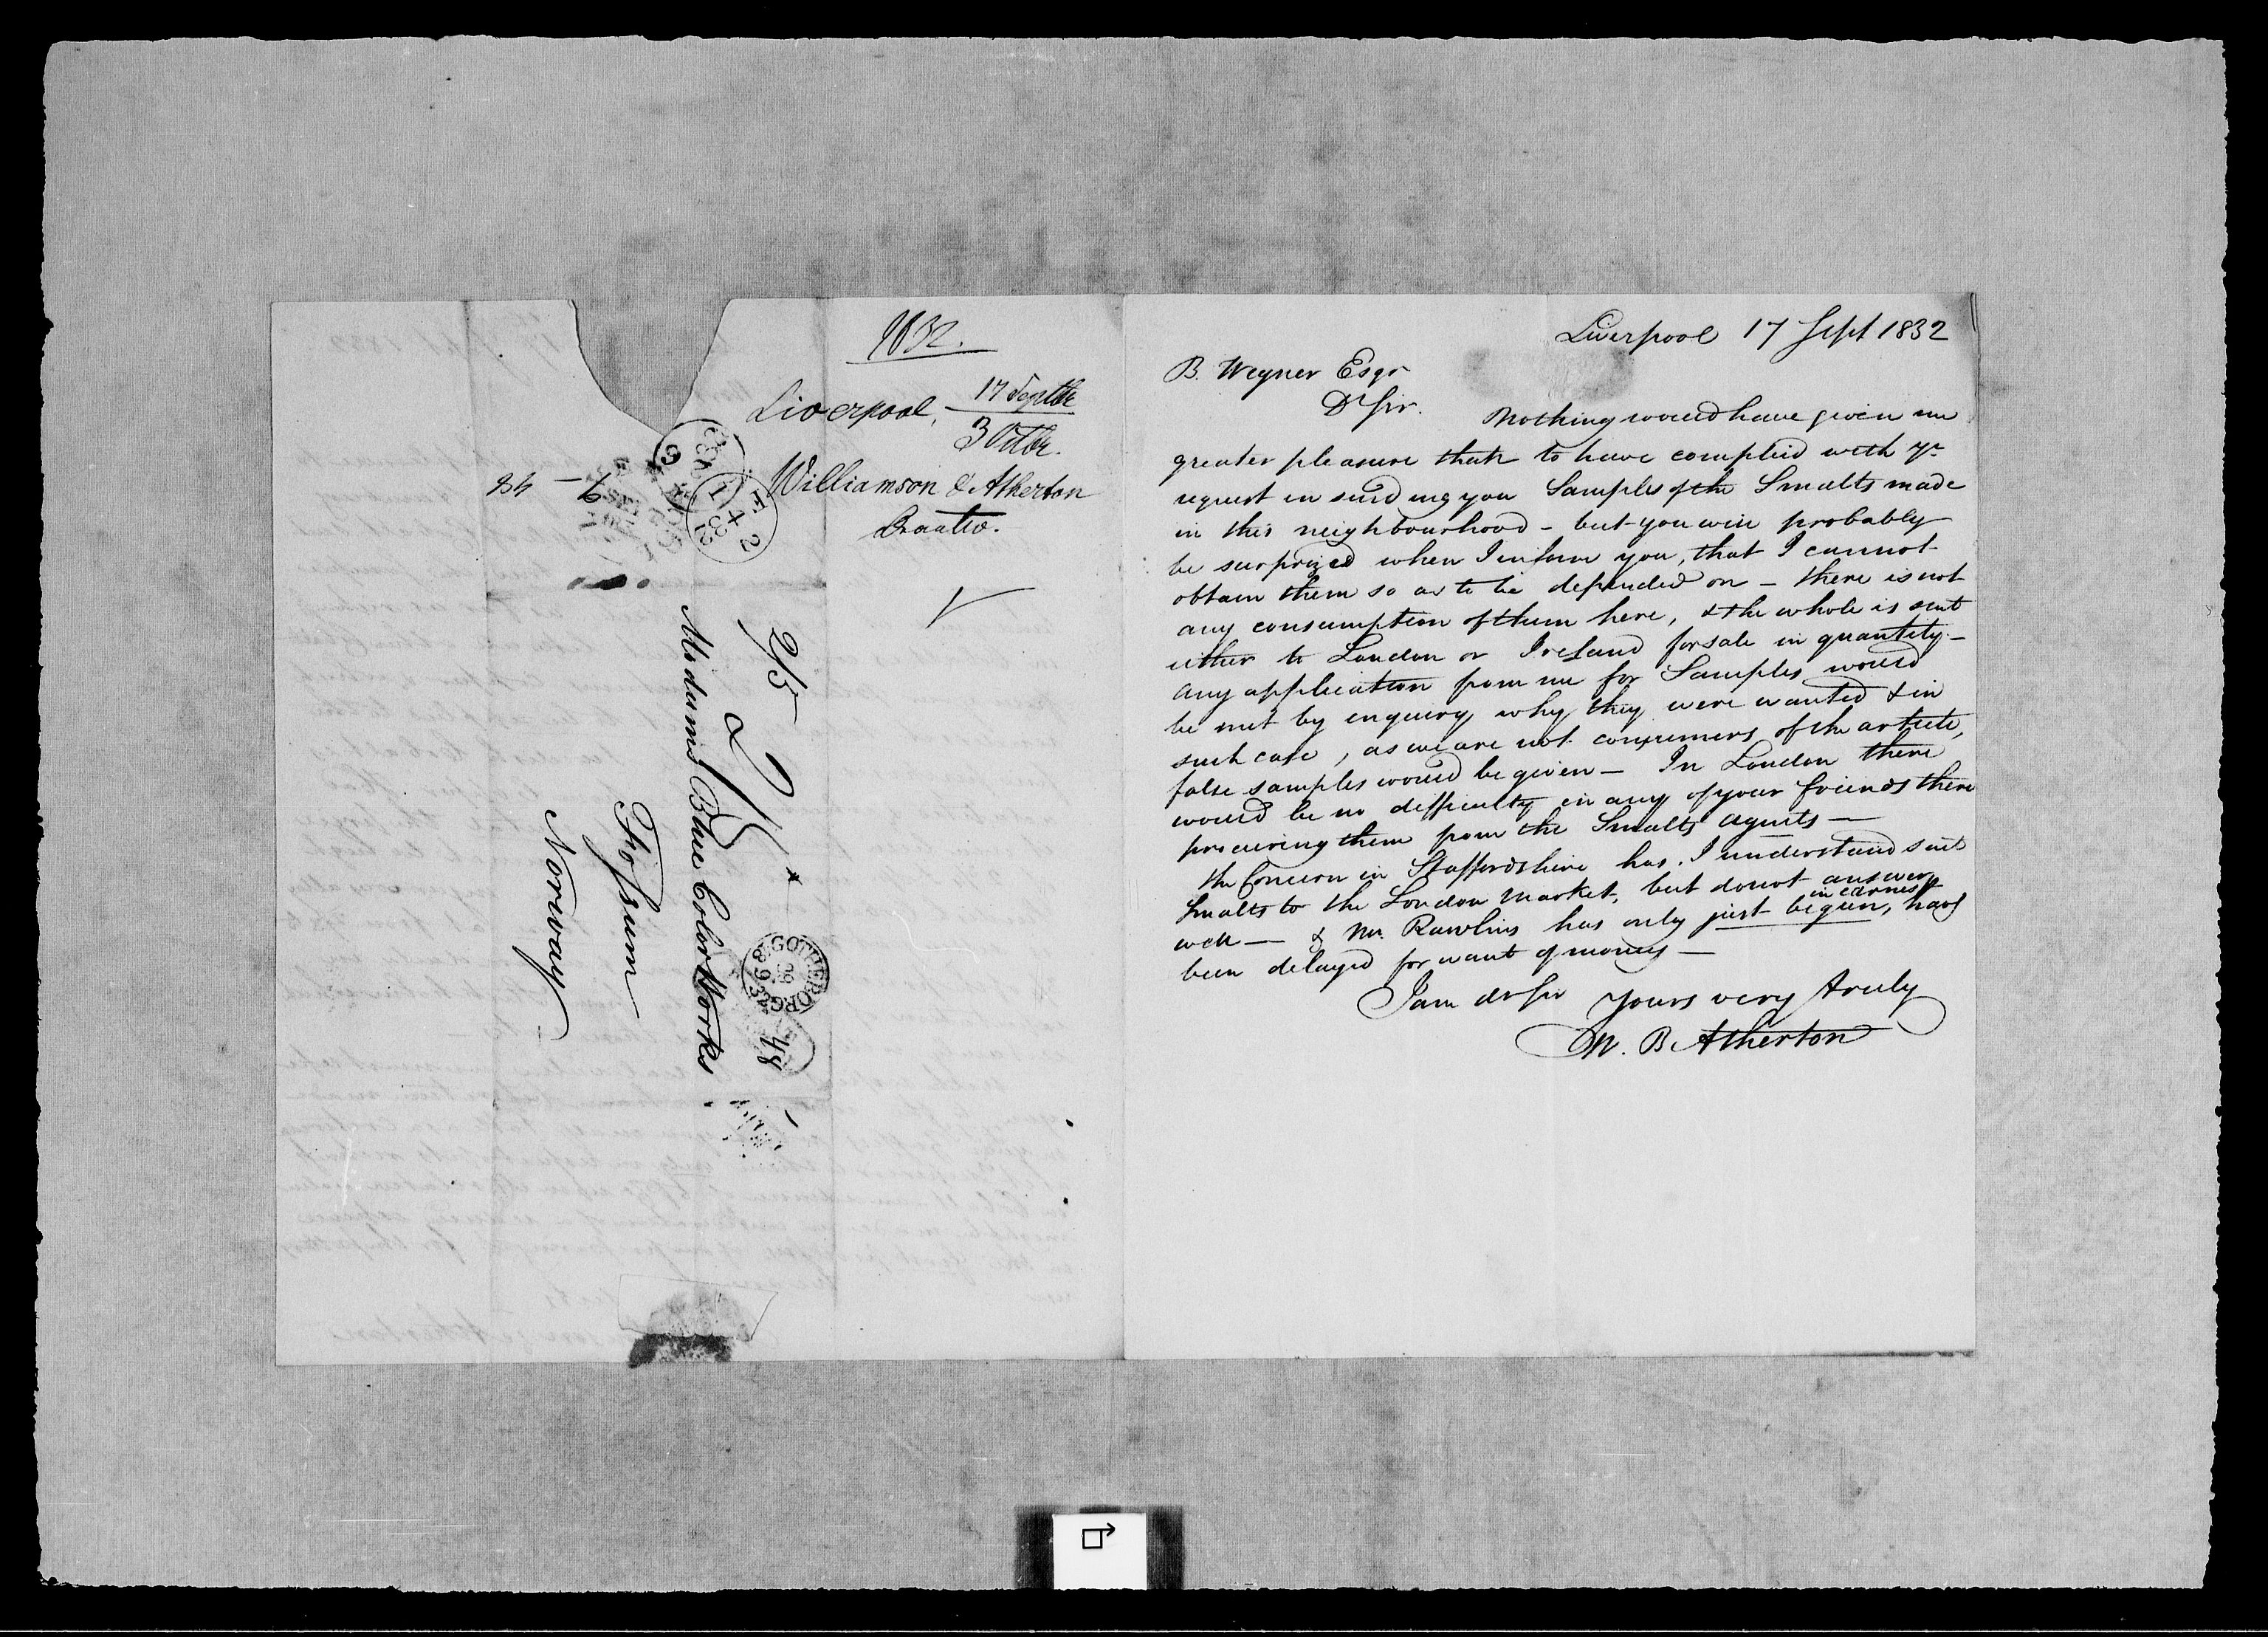 1832.
Liverpool, 17 Septbr
3 Octbr.
Williamson & Atherton
2/5
Modums Blue Color Works
Fossum
Norway
GOTHEBORG
48
Liverpool 17 Sept 1832
B. Wegner Esqr
Dr Sir.
Nothing would have given me
greater pleasure than to have complied with yr
request in sending you Samples of the Smalts made
in this neighbourhood - but you will probably
be surprized when I inform you, that I cannot
obtain them so as to be depended on - there is not
any consumption of them here, & the whole is sent
either to London or Ireland for sale in quantity -
Any application from me for Samples would
be met by enquiry why they were wanted & in
such case, as we are not consumers of the article,
false samples would be given - In London there
would be no difficulty in any of your friends there
procuring them from the Smalts agents -
the Concern in Staffordshire has, I understand sent
Smalts to the London Market, but do not answer
well - & Mr. Rawlins has only just begun in earnest, havg
been delayed for want of money -
I am dr Sir Yours very truly
W. B. Atherton